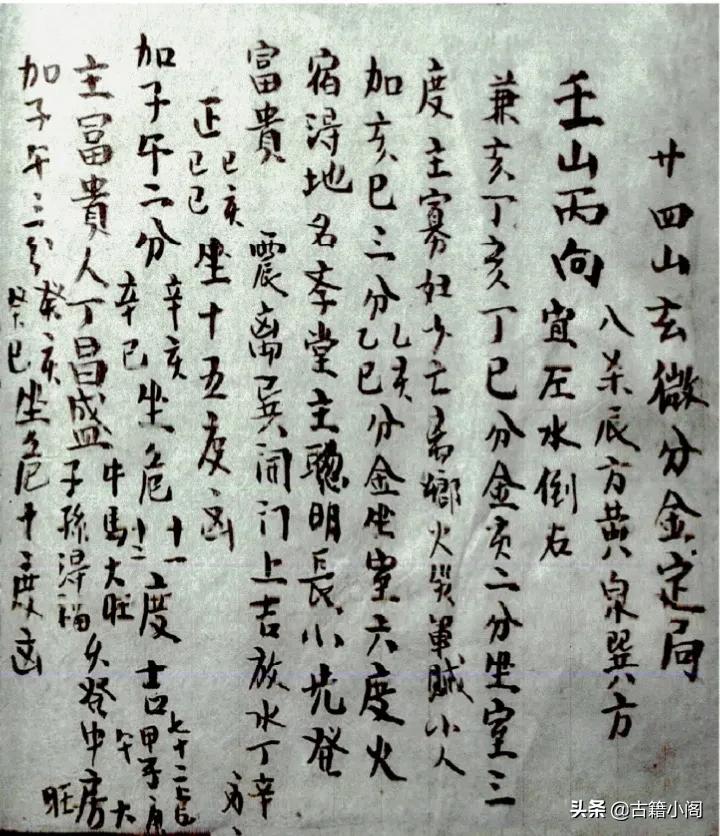 廿四山玄微分金定局
八杀辰方黄泉巽方
壬山丙向 宜左水倒右
兼亥丁亥丁巳分金亥二分坐室三
度主寡妇少亡离乡火災軍賊小人
加亥巳三分乙亥乙巳分金坐室六度火
宿得地名李堂主聰明長小先發
富貴 震离巽開门上吉放水丁辛
正己亥己巳坐十五度凶
加子午二分辛亥辛巳坐危十一十二度吉甲子
主富貴人丁昌盛牛馬大旺子孫得福久發中房大旺
加子午三分癸亥癸巳坐危十三度凶
头条 @古籍小阁